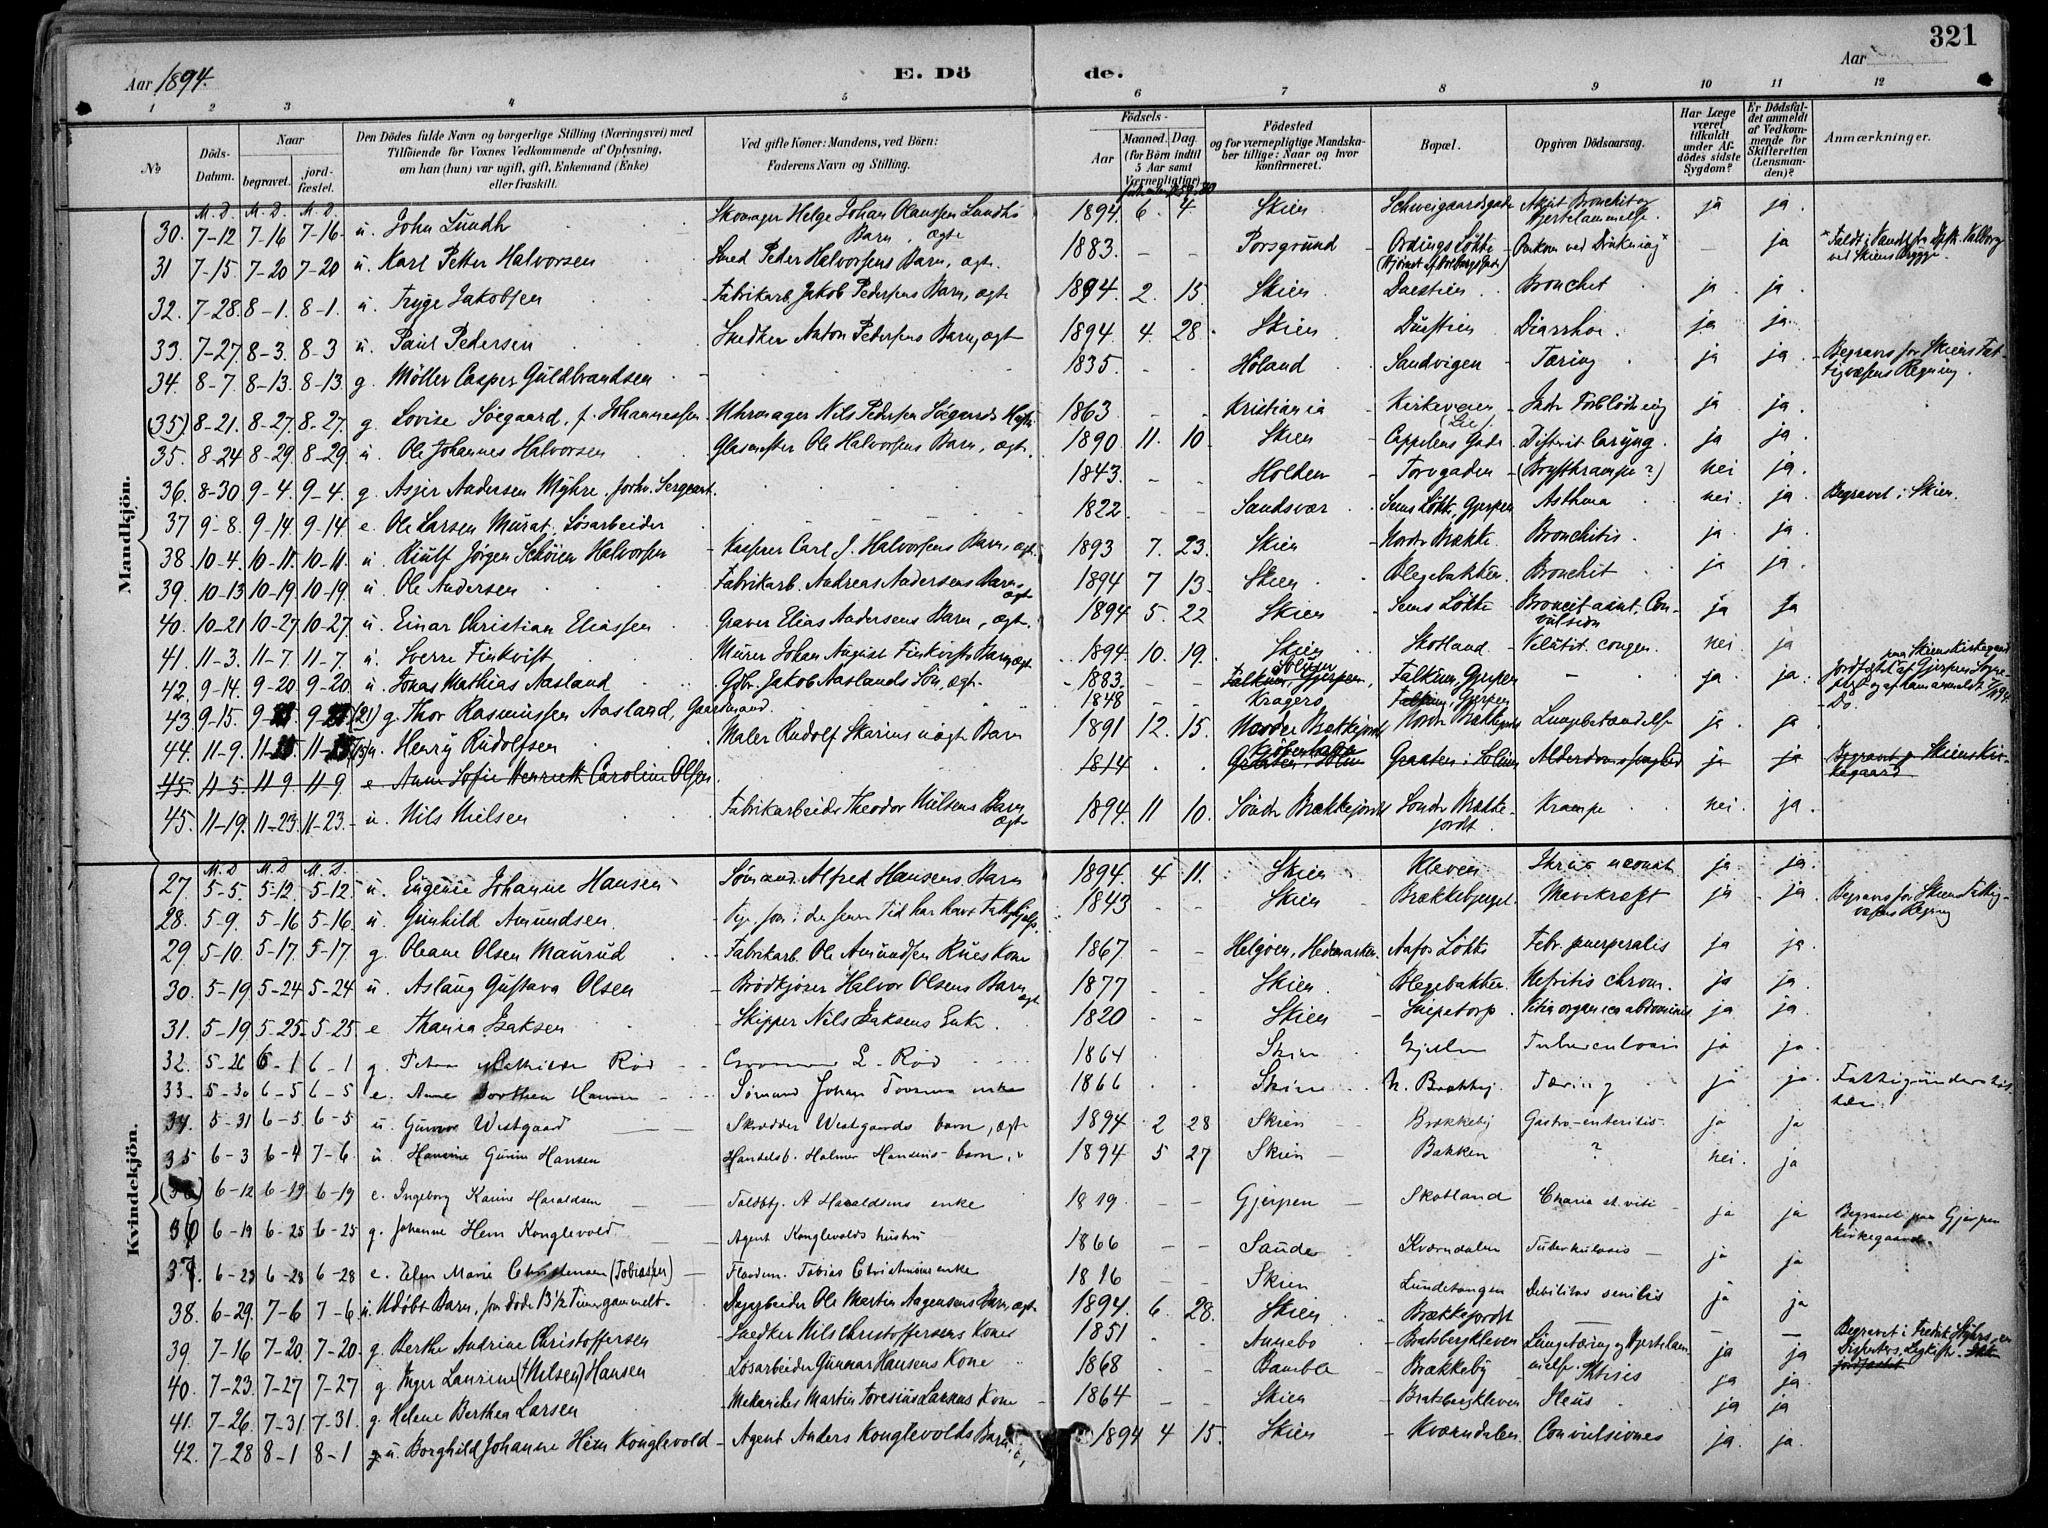 321
Aar 1894. E. Dö de. Aar
1 2 3 4 5 6 7 8 9 10 11 12
No Döds-Datum. Naar begravet. jordfæstet. Den Dödes fulde Navn og borgerlige Stilling (Næringsvei) med Tilföiende for Voxnes Vedkommende af Oplysning, om han (hun) var ugift, gift, Enkemand (Enke) eller fraskilt. Ved gifte Koner: Mandens, ved Börn: Faderens Navn og Stilling. Födsels- Aar Maaned. Dag. (for Börn indtil 5 Aar samt Værnepligtige) Födested og for værnepligtige Mandskaber tillige: Naar og hvor konfirmeret. Bopæl. Opgiven Dödsaarsag. Har Læge været tilkaldt under Afdödes sidste Sygdom? Er Dödsfaldet anmeldt af Vedkommende for Skifteretten (Lensmanden)? Anmærkninger.
Mandkjön.
M. D. M. D. M. D.
30. 7-12 7-16 7-16 u. John Lundh Skomager Helge Johan Olaussen Lundhs Barn, ægte 1894 6. 4. Skien Schweigaardsgade Akut Bronchit og Hjertelammelse. ja ja.
31 7-15. 7-20 7-20 u. Karl Petter Halvorsen Smed Peder Halvorsens Barn, ægt. 1883. - - Porsgrund Ordings Løkke Omkom ved Drukning* - ja *Faldt i Vandet fra Dpsk. Valborg ved Skiens Brygge.
32. 7-28. 8-1. 8-1. u. Tryge Jakobsen Fabrikarb. Jakob Pedersens Barn, ægte 1894. 2. 15 Skien Duestien Bronchit ja ja.
33. 7-27. 8-3. 8-3 u. Paul Pedersen Snedker Anton Pedersens Barn, ægt 1894. 4. 28. Skien Duestien Diarrhoe. ja ja.
34. 8-7. 8-13. 8-13. g. Møller Casper Guldbrandsen 1835. - - Høland Sandvigen Tæring ja ja. Begraves for Skiens Fattigvæsens Regning.
(35) 8-21. 8-27. 8-27. g. Lovise Søegaard, f. Johannessen Uhrmager Nils Pedersen Søegaards Hustru 1863 - - Kristiania Kirkeveien (Lie) Indre Forblødning ja ja
35. 8-24 8-29. 8-29. u. Ole Johannes Halvorsen Glasmester Ole Halvorsens Barn, ægt. 1890. 11. 10. Skien Cappelens Gade Difterit laryng. ja ja.
36. 8-30 9-4. 9-4. g. Asjer Andersen Myhre, forhv. Sergeant. 1843. - - Holden Torvgaden (Brystkrampe?) nei ja.
37 9-8. 9-14 9-14 e. Ole Larsen Murat. Løsarbeider 1822 - - Sandsvær Sems Løkke, Gjerpen Asthma nei. ja Begravet i Skien.
38 10-4. 10-11. 10-11. u. Rjulf Jørgen Schøien Halvorsen Kasserer Carl J. Halvorsens Barn, ægt. 1893 7. 23. Skien Nordr. Brække. Bronchitis. ja ja.
39. 10-13 10-19 10-19 u. Ole Andersen Fabrikarb. Andreas Andersens Barn, ægt. 1894 7 13. Skien. Blegebakken Bronchit ja ja.
40. 10-21 10-27 10-27. u. Einar Christian Eliassen Graver Elias Andersens Barn, ægt. 1894 5. 22 Skien Sems Løkke Broncit acut. Convulsion ja ja
41. 11-3. 11-7. 11-7. u. Sverre Finkvist Murer Johan August Finkvists Barn, ægt 1894. 10. 19. Skien Skotland. Velutit. congen. nei ja
42. 9-14. 9-20 9-20. u. Jonas Mathias Aasland Gdbr. Jakob Aaslands Søn, ægt. 1883. - - Solum Falkum, Gjerpen, Falkum, Gjerpen - ja ja.
43. 9-15. 9- 9- (21) g. Thor Rasmussen Aasland, Gaardmand. 1848 - - Kragerø Falkum, Gjerpen Do.
44. 11-9. 11-15 11-15 u. Henry Rudolfsen Maler Rudolf Skarius uægt Barn 1891 12. 15. Nordre Brækkejordet Nordr. Brækkejordt Lungebetændelse ja. ja
45. 11-5 11-9 11-9 e. Anne Sofie Henriette Caroline Olsen 1814 Kjøbenhavn Graaten i Solum Alderdomssvaghed ja ja Begravet p. Skiens Kirkegaard
45. 11-19. 11-23. 11-23. u. Nils Nielsen Fabrikarbeider Theodor Nielsens Barn, ægt. 1894. 11 10. Søndr. Brækkejordt Søndr. Brækkejordt. Krampe nei. ja.
Kvindekjön.
M. D M. D M. D.
27. 5-5. 5-12. 5-12. u. Eugenie Johanne Hansen Sømand Alfred Hansens Barn 1894. 4 11. Skien Kleven Ikrus neonat ja ja.
28. 5-9. 5-16 5-16. u. Gunhild Amundsen. Pige, som i den senere Tid har havt Fattighjælp. 1843 - - Skien Brækkebygd. Mavekræft ja ja. Begraves for Skiens Fattigvæsens Regning
29 5-10. 5-17. 5-17 g. Oleane Olsen Maurud Fabrikarb. Ole Amundsen Rues Kone 1867. - - Helgøen, Hedemarken. Aafos Løkke Febr. puerperalis ja ja.
30. 5-19 5-24 5-24 u. Aslaug Gustava Olsen Brödkjører Halvor Olsens Barn, ægt 1877 - Skien. Blegebakken Nefritis chron. ja ja.
31. 5-19 5-25. 5-25. e Tharia Isaksen Skipper Nils Isaksens Enke 1820 - - Skien Snipetorp Vitium organicum abdominis ja ja.
32. 5-26 6-1 6-1 g. Petra Mathilde Rød L. Rød 1864 Skien Tuberculosis ja ja.
33. 5-30 6-5 6-5 e. Anne Dorthea Hansen Sømand Johan enke 1866 Skien N. Brækkej. Tæring ja ja. Fattigunderstøttet.
34. 5-31 6-5. 6-5 u. Gunvor Westgaard Skrædder Westgaards barn, ægte 1894 2 28 Skien Brækkeby Gastro-enteritis ja ja
35 6-3 6-4 7-6 u. Hansine Gunda Hansen Handelsb. Holmer Hansens barn, " 1894 5 27 Skien Bakken ? nei. ja
(36) 6-12 6-19 6-19 e. Ingeborg Karine Haraldsen Toldbtj. A Haraldsens enke 1819 Gjerpen Skotland Chorea st. viti ja ja
36 6-19 6-25 6-25 g. Johanne Hem Konglevold Agent Konglevolds hustru 1866 Saude Kværndalen Tuberkulosis ja ja Begravet paa Gjerpen Kirkegaard.
37. 6-23 6-28 6-28 e. Elen Marie Christensen (Tobiassen) Flaadem. Tobias Christensens enke 1816 Skien Lundetangen Debilitas senilis ja ja
38. 6-29. 7-6 7-6 u. Udøbt Barn, som døde 13½ Timer gammelt Sagarbeider Ole Martin Aagensens Barn, ægt 1894 6. 28. Skien Brækkejordt - -
39. 7-16 7-20. 7-20. g. Berthe Andrine Christoffersen Snedker Nils Christoffersens Kone 1851 Annebo Bratsbergkleven Lungetæring og Hjertelammelse ja ja
40. 7-23. 7-27 7-27 g. Inger Laurine (f. Nilsen) Hansen Løsarbeider Gunnar Hansens Kone 1868 Bamble Brækkeby Phtisis ja ja.
41. 7-26. 7-31 7-31. g. Helene Berthea Larsen Mekanikes Martin Toresius Larsens Kone 1864 - - Skien Bratsbergkleven Ileus ja ja
42. 7-28 8-1 8-1 u. Borghild Johanne Hem Konglevold Agent Anders Konglevolds Barn 1894 4 15. Skien Kværndalen Convulsiones ja. ja.